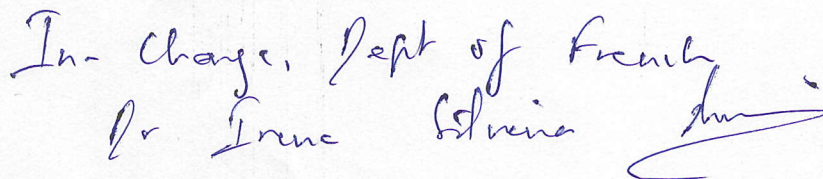 In-Charge, Dept of French
Dr Irene Silveira